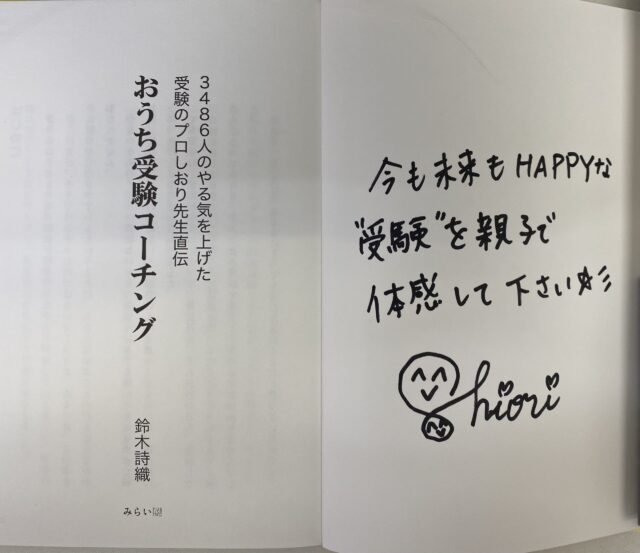 3486人のやる気を上げた
受験のプロしおり先生直伝
おうち受験コーチング
鈴木詩織
みらい
今も未来もHAPPYな
"受験"を親子で
体感して下さい☆彡
Shiori